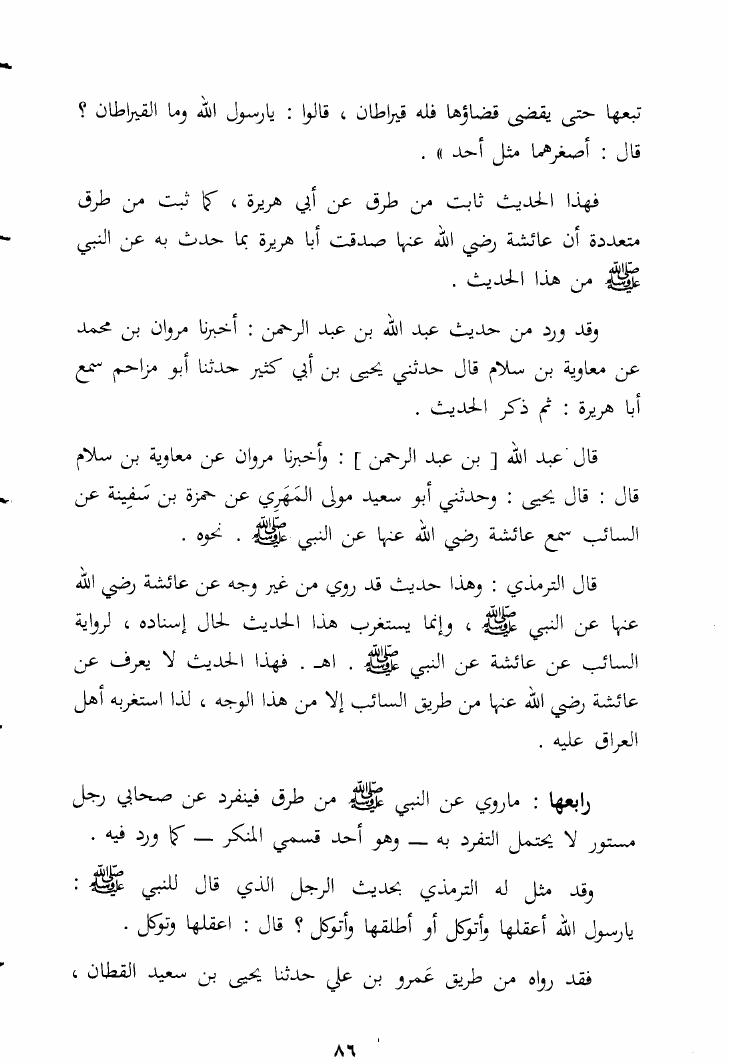 تبعها حتى يقضى قضاؤها فله قيراطان ، قالوا : يارسول الله وما القيراطان ؟
قال : أصغرهما مثل أحد » .
فهذا الحديث ثابت من طرق عن أبي هريرة ، كما ثبت من طرق
متعددة أن عائشة رضي الله عنها صدقت أبا هريرة بما حدث به عن النبي
ﷺ من هذا الحديث .
وقد ورد من حديث عبد الله بن عبد الرحمن : أخبرنا مروان بن محمد
عن معاوية بن سلام قال حدثني يحيى بن أبي كثير حدثنا أبو مزاحم سمع
أبا هريرة : ثم ذكر الحديث .
قال عبد الله [ بن عبد الرحمن ] : وأخبرنا مروان عن معاوية بن سلام
قال : قال يحيى : وحدثني أبو سعيد مولى المَهَرِي عن حمزة بن سَفِينة عن
السائب سمع عائشة رضي الله عنها عن النبي ﷺ . نحوه .
قال الترمذي : وهذا حديث قد روي من غير وجه عن عائشة رضي الله
عنها عن النبي ﷺ ، وإنما يستغرب هذا الحديث لحال إسناده ، لرواية
السائب عن عائشة عن النبي ﷺ . اهـ . فهذا الحديث لا يعرف عن
عائشة رضي الله عنها من طريق السائب إلا من هذا الوجه ، لذا استغربه أهل
العراق عليه .
رابعها : ماروي عن النبي ﷺ من طرق فينفرد عن صحابي رجل
مستور لا يحتمل التفرد به ــ وهو أحد قسمي المنكر ــ كما ورد فيه .
وقد مثل له الترمذي بحديث الرجل الذي قال للنبي ﷺ :
يارسول الله أعقلها وأتوكل أو أطلقها وأتوكل ؟ قال : اعقلها وتوكل .
فقد رواه من طريق عَمرو بن علي حدثنا يحيى بن سعيد القطان ،
٨٦